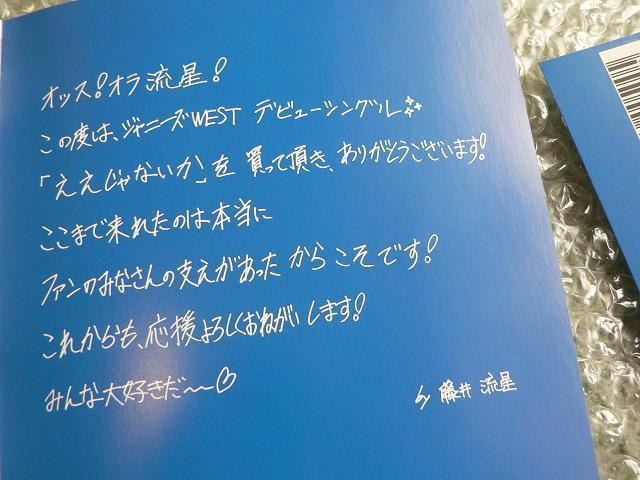 オッス！オラ流星！
この度は、ジャニーズWEST デビューシングル
「ええじゃないか」を 買って頂き、ありがとうございます！
ここまで来れたのは本当に
ファンのみなさんの支えがあったからこそです！
これからも、応援よろしくおねがいします！
みんな大好きだ〜♡
by 藤井 流星